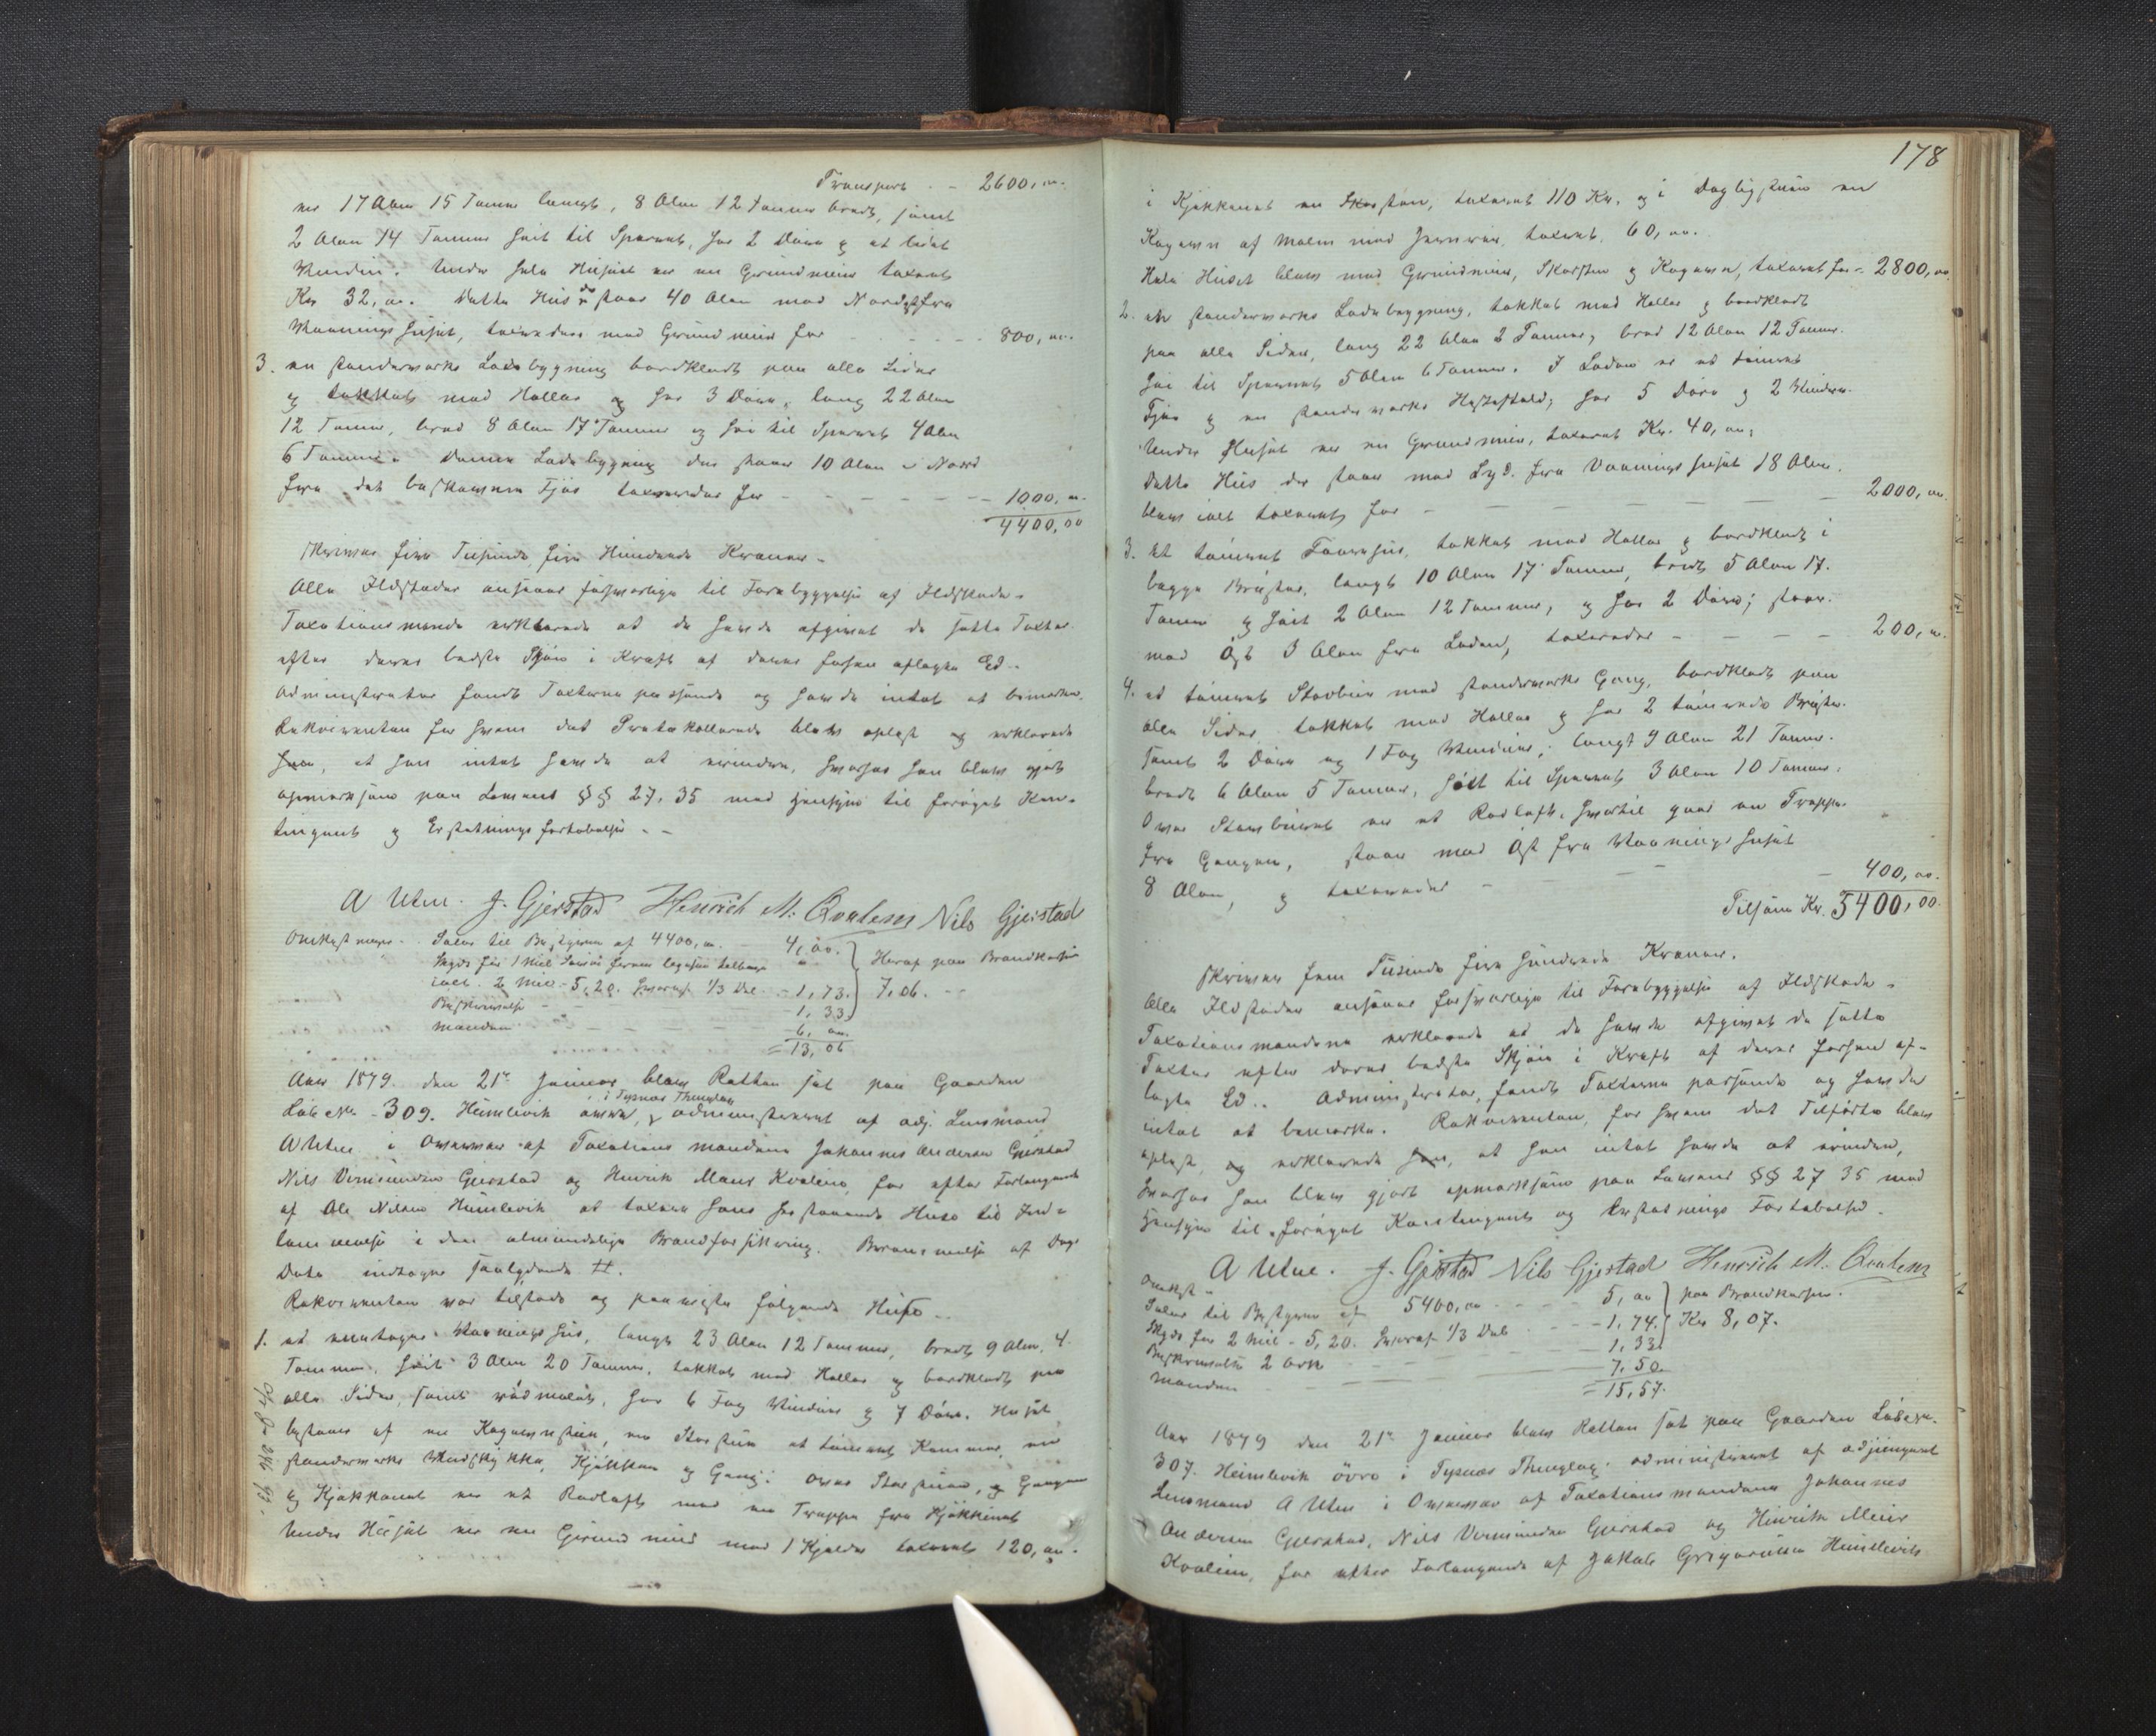 Transport . - 2600,00.
er 17 Alen 15 Tommer langt, 8 Alen 12 Tommer bredt, samt
2 Alen 14 Tommer höit til Sperret, har 2 Döre og et lidet
Vindu. Under hele Huset er en Grundmur taxeret
Kr 32,00. Dette Hus der staar 40 Alen mod Nordost fra
Vaaningshuset, taxeredes med Grundmur for - - - - 800,00.
3. en standerværks Ladebygning bordklædt paa alle Sider
og takket med Heller og har 3 Döre, lang 22 Alen
12 Tommer, bred 8 Alen 17 Tommer og höi til Sperret 4 Alen
6 Tommer. Denne Ladebygning der staar 10 Alen i Nord
fra det beskrevne Fjös taxeredes for - - - - - - 1000,00.
4400,00
skriver fire Tusinde fire Hundrede Kroner.
Alle Ildsteder ansaaes forsvarlige til Forebyggelse af Ildskade.
Taxationsmænde erklærede at de havde afgivet de satte Taxter
efter deres bedste Skjön i Kraft af deres forhen aflagte Ed.
Administrator fandt Taxterne passende og havde intet at bemærke.
Rekvirenten for hvem det Protokollerede blev oplæst og erklærede
han, at han intet havde at erindre, hvorhos han blev gjort
opmærksom paa Lovens §§ 27, 35 med Hensyn til foröget Kon-
tingent og Erstatnings fortabelse. -
A Utne. J. Gjerstad Henrich M: Qvalem Nils Gjerstad
Omkostninger. Salær til Bestyreren af 4400,00. - 4,00. } Heraf paa Brandkassen
Skyds for 1 Miil Söveien tilbage "
ialt. 2 Mile - 5,20. hvoraf 1/3 Del - 1,73. } 7,06. --
Beskrivelse - - - 1,33.
Mændene - - - 6,00.
= 13,06
Aar 1879. den 21de Januar blev Retten sat paa Gaarden
Löbe No - 309. Heimlevik övre i Tysnæs Thinglag, administreret af adj. Lensmand
A Utne i Overvær af Taxationsmændene Johannes Andersen Gjerstad
Nils Vermundsen Gjerstad og Henrik Meier Kvalem, for efter Forlangende
af Ole Nilsen Heimlevik at taxere hans her staaende Huse til Ind-
lemmelse i den almindelige Brandforsikring. Berammelse af Dags
Dato indtages saalydende #.
Rekvirenten var tilstede og paaviste fölgende Huse ..
1. et eenetages Vaaningshus, langt 23 Alen 12 Tommer, bredt 9 Alen, 4.
Tommer, höit 3 Alen 20 Tommer, takket med Heller og bordklædt paa
alle Sider, samt rödmalet, har 6 Fag Vinduer og 7 Döre. Huset
bestaaer af en Kogeovnstue, en Storstue et tömret Kammer, en
standerværks Vedskykkje, Kjökken og Gang: over Storstuen, og Gangen
og Kjøkkenet er et Rodloft med en Trappe fra Kjökkenet
Under Huset er en Grundmur med 1 Kjelder taxeret 120,00.
178
i Kjøkkenet en Skorsten, taxeret 110 Kr. og i Dagligstuen en
Kogeovn af Malm med Jernrör, taxeret 60,00.
Hele Huset blev med Grundmur, Skorsten og Kogeovn, taxeret for - 2800,00
2. en standerværks Ladebygning, takket med Heller og bordklædt
paa alle Sider, lang 22 Alen 2 Tommer, bred 12 Alen 12 Tommer.
höi til Sperret 5 Alen 6 Tommer. I Laden er et tömret
Fjös og en standerværks Hestestald; har 5 Döre og 2 Vinduer.
Under Huset er en Grundmur, taxeret Kr. 40,00,
Dette Hus der staar mod Syd. fra Vaaningshuset 18 Alen.
blev ialt taxeret for - - - - - 2000,00.
3. et tömret Faarehus, takket med Heller og bordklædt i
begge Bröster, langt 10 Alen 17 Tommer, bredt 5 Alen 17.
Tomme og höit 2 Alen 12 Tommer, og har 2 Döre; staar.
mod Öst 3 Alen fra Laden, taxeredes - - - - 200,00.
4. et tömret Stavbur med standerværks Gang, bordklædt paa
alle Sider takket med Heller og har 2 tömrede Bröster.
samt 2 Döre og 1 Fag Vinduer; langt 9 Alen 21 Tomme.
bredt 6 Alen 5 Tommer, höit til Sperret 3 Alen 10 Tommer.
Over Stavburet er et Rodloft, hvortil gaar en Trappe
fra Gangen, staar mod Öst fra Vaaningshuset
8 Alen, og taxeredes - - - - 400,00.
Tilsam Kr. 5400,00.
skriver fem Tusinde fire hundrede Kroner.
Alle Ildsteder ansaaes forsvarlige til Forebyggelse af Ildskade.
Taxationsmændene erklærede at de havde afgivet de satte
Taxter efter deres bedste Skjön i Kraft af deres forhen af-
lagte Ed.. Administrator, fandt Taxterne passende og havde
intet at bemærke. Rekvirenten, for hvem det Tilförte blev
oplæst, og erklærede han, at han intet havde at erindre,
hvorhos han blev gjort opmærksom paa Lovens §§ 27 35 med
Hensyn til foröget Kontingent og Erstatnings Fortabelse.
A Utne. J. Gjerstad Nils Gjerstad Henrich M. Qvalem
Omkost -
Salær til Bestyreren af 5400,00 - - - 5,00 } paa Brandkassen.
Skyds for 2 Mile - 5,20. hvoraf 1/3 Del - - - 1,74. } Kr 8,07.
Beskrivelse 2 Ark - - - 1,33
Mændene - - - 7,50.
= 15,57.
Aar 1879 den 21de Januar blev Retten sat paa Gaarden Löbeno.
307. Heimlevik övre i Tysnæs Thinglag. administreret af adjungeret
Lensmand A Utne i Overvær af Taxationsmændene Johannes
Andersen Gjerstad, Nils Vermundsen Gjerstad og Henrik Meier
Kvalem, for efter Forlangende af Jakob Grigoriusen Heimlevik